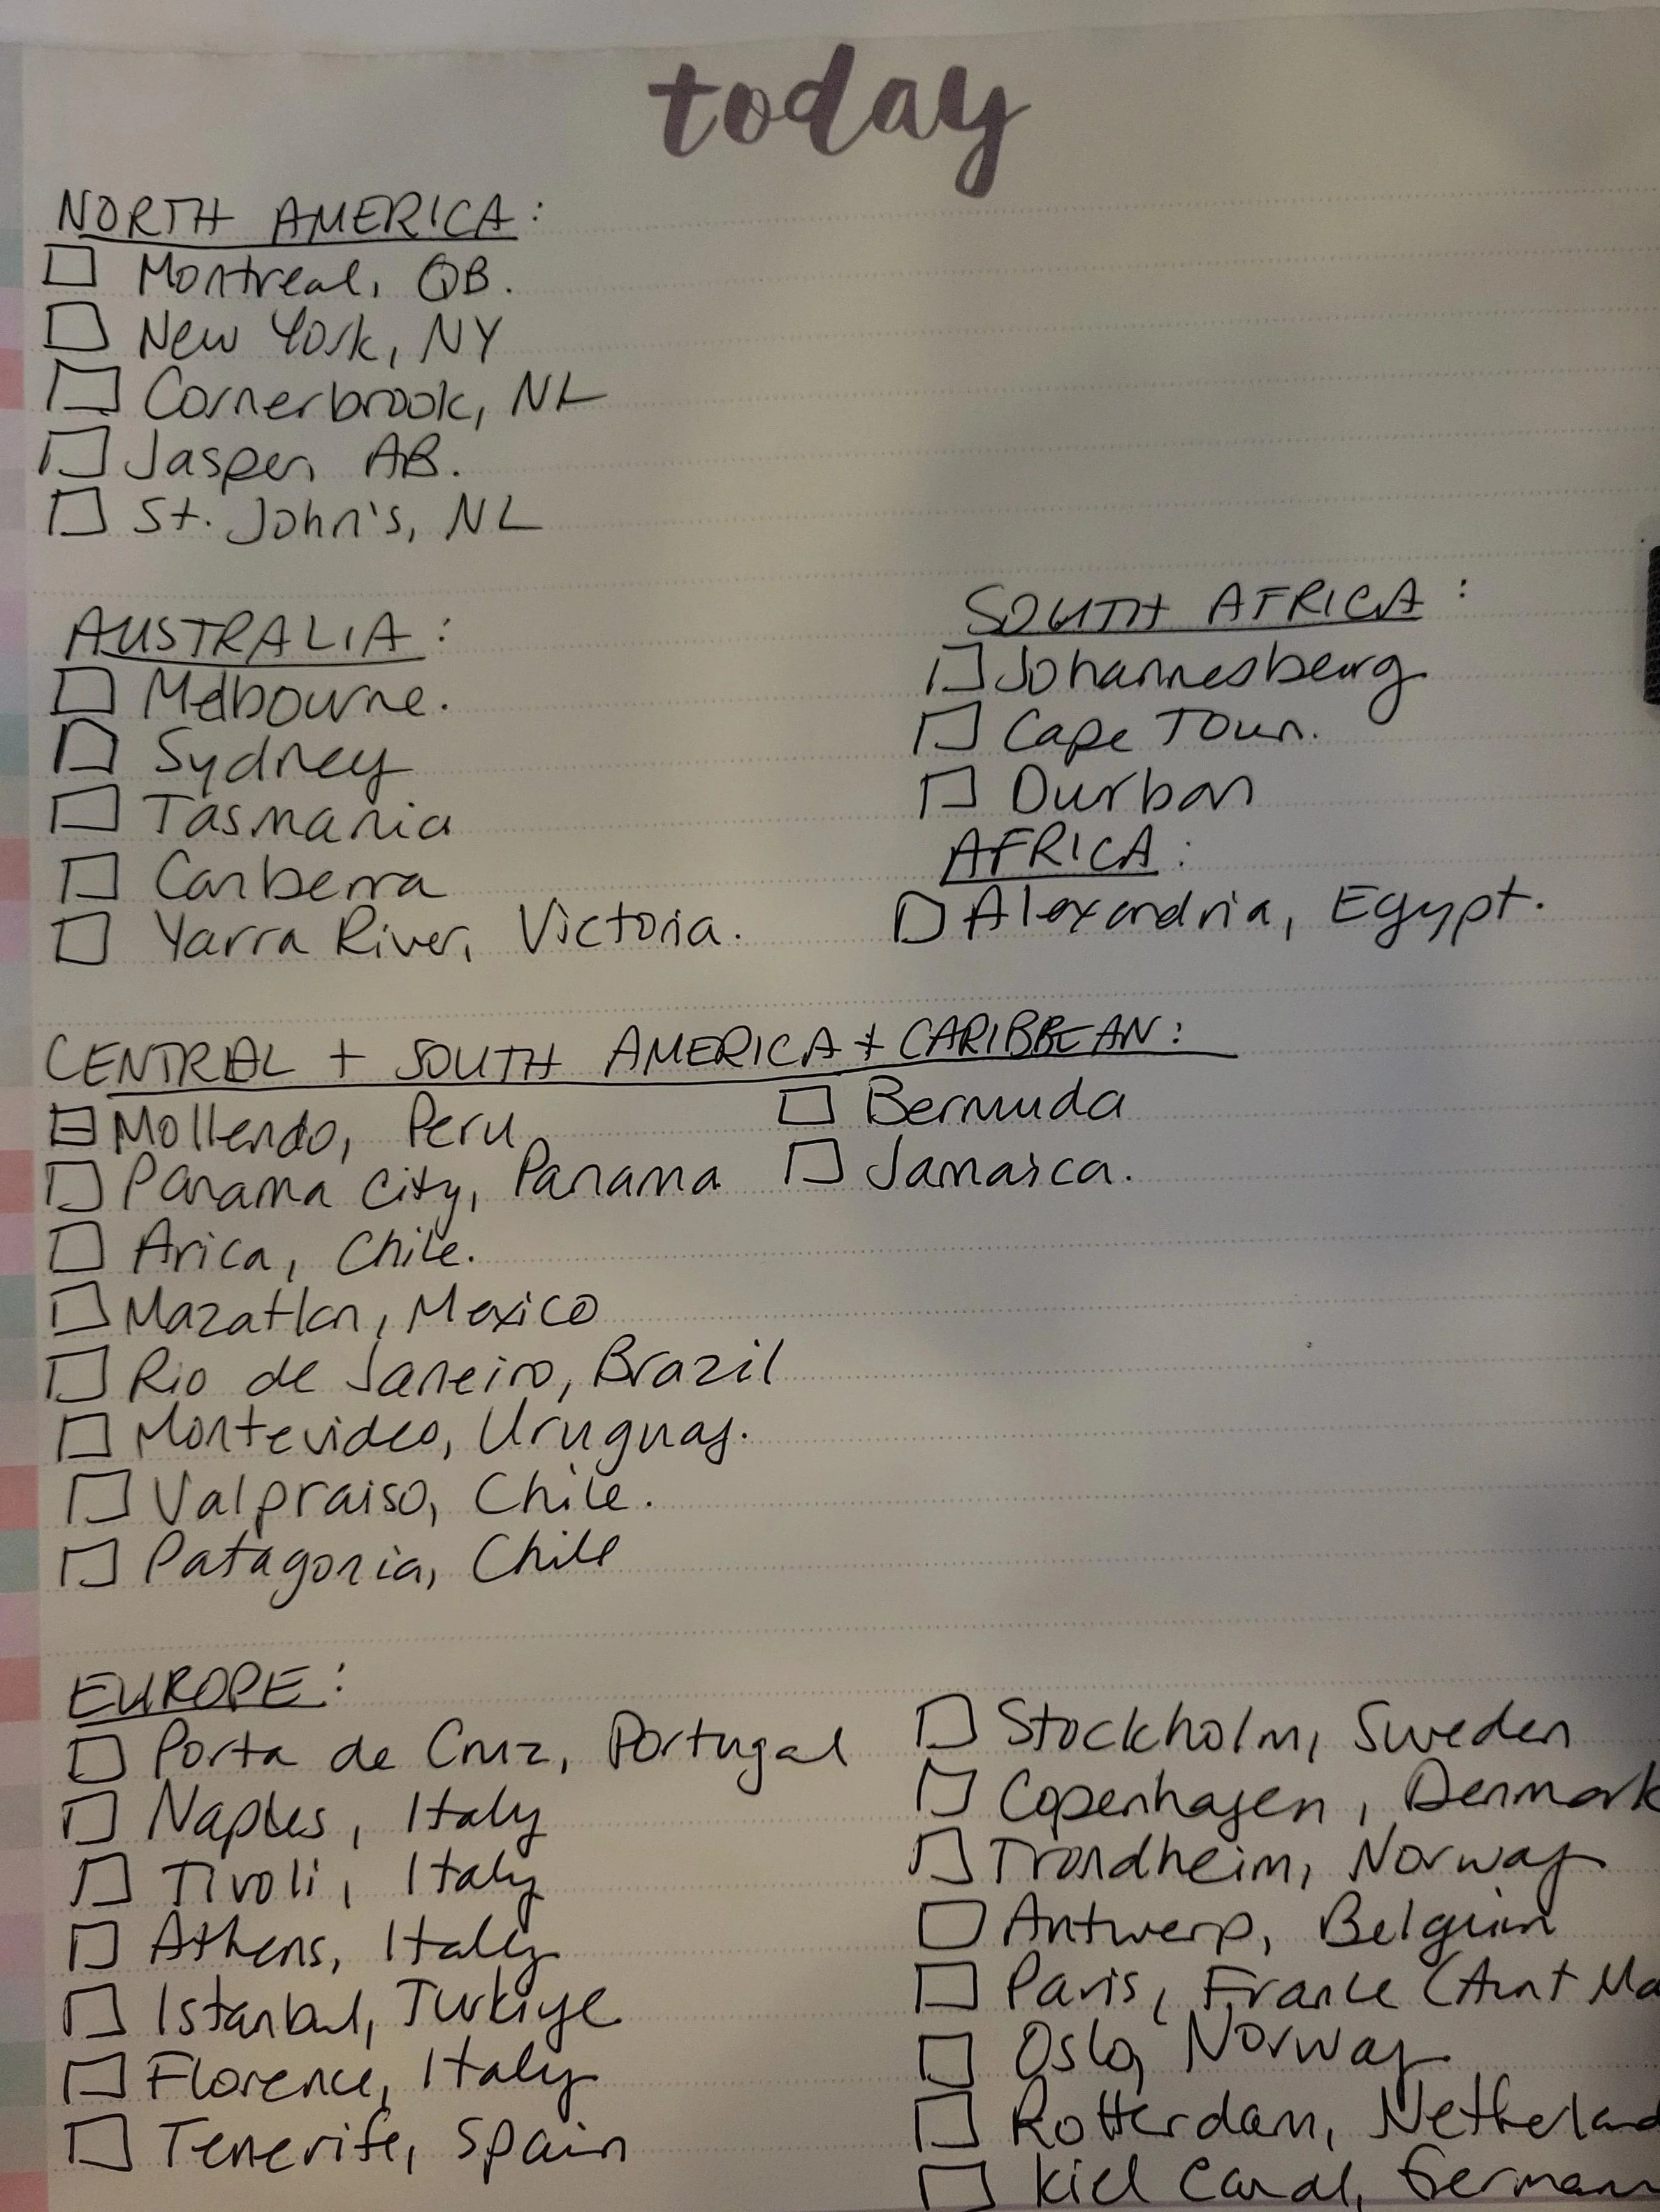 today
NORTH AMERICA:
Montreal, QB.
New York, NY
Cornerbrook, NL
Jasper, AB.
St. John's, NL
AUSTRALIA:
Melbourne.
Sydney
Tasmania
Canberra
Yarra River, Victoria.
SOUTH AFRICA:
Johannesberg
Cape Town.
Durban
AFRICA:
Alexandria, Egypt.
CENTRAL + SOUTH AMERICA + CARIBBEAN:
Mollendo, Peru
Panama City, Panama
Arica, Chile.
Mazatlan, Mexico
Rio de Janeiro, Brazil
Montevideo, Uruguay.
Valpraiso, Chile.
Patagonia, Chile
Bermuda
Jamaica.
EUROPE:
Porta de Cruz, Portugal
Naples, Italy
Tivoli, Italy
Athens, Italy
Istanbul, Turkiye
Florence, Italy
Tenerife, Spain
Stockholm, Sweden
Copenhagen, Denmark
Trondheim, Norway
Antwerp, Belgium
Paris, France (Aunt Ma
Oslo, Norway
Rotterdam, Netherland
Kiel Canal, German